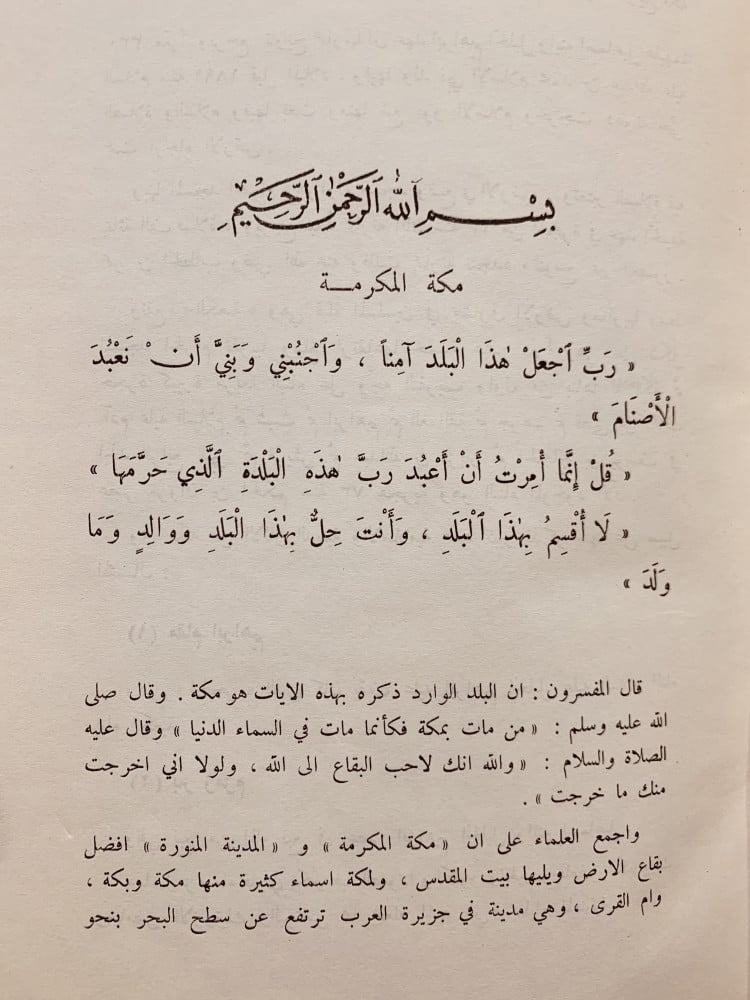 بِسْمِ ٱللَّٰهِ ٱلرَّحْمَٰنِ ٱلرَّحِيمِ
مكة المكرمـــة
« رَبِّ ٱجْعَلْ هٰذَا الْبَلَدَ آمِناً ، وَٱجْنُبْنِي وَبَنِيَّ أَنْ نَعْبُدَ
الْأَصْنَامَ »
« قُلْ إِنَّمَا أُمِرْتُ أَنْ أَعْبُدَ رَبَّ هٰذِهِ الْبَلْدَةِ ٱلَّذِي حَرَّمَهَا »
« لَا أُقْسِمُ بِهٰذَا ٱلْبَلَدِ ، وَأَنْتَ حِلٌّ بِهٰذَا الْبَلَدِ وَوَالِدٍ وَمَا
وَلَدَ »
قال المفسرون : ان البلد الوارد ذكره بهذه الايات هو مكة . وقال صلى
الله عليه وسلم : « من مات بمكة فكأنما مات في السماء الدنيا » وقال عليه
الصلاة والسلام : « والله انك لاحب البقاع الى الله ، ولولا اني اخرجت
منك ما خرجت » .
واجمع العلماء على ان « مكة المكرمة » و « المدينة المنورة » افضل
بقاع الارض ويليها بيت المقدس ، ولمكة اسماء كثيرة منها مكة وبكة ،
وام القرى ، وهي مدينة في جزيرة العرب ترتفع عن سطح البحر بنحو